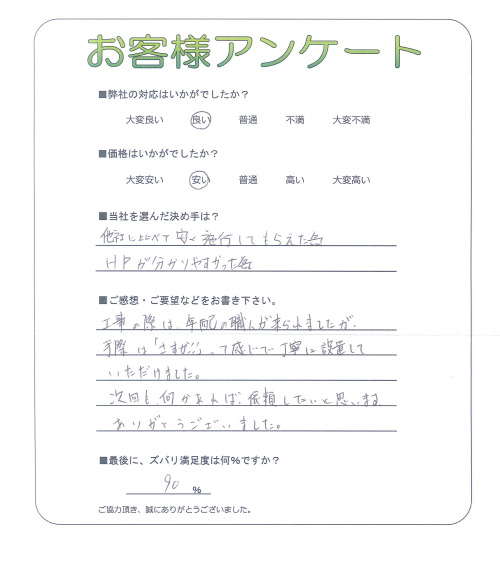 お客様アンケート
■弊社の対応はいかがでしたか？
大変良い 良い 普通 不満 大変不満
■価格はいかがでしたか？
大変安い 安い 普通 高い 大変高い
■当社を選んだ決め手は？
他社に比べて安く施行してもらえた為
HPが分かりやすかった為
■ご感想・ご要望などをお書き下さい。
工事の際は、年配の職人が来られましたが、
手際は「さすが!!」って感じで丁寧に設置して
いただけました。
次回も何かあれば、依頼したいと思います
ありがとうございました。
■最後に、ズバリ満足度は何%ですか？
90 %
ご協力頂き、誠にありがとうございました。